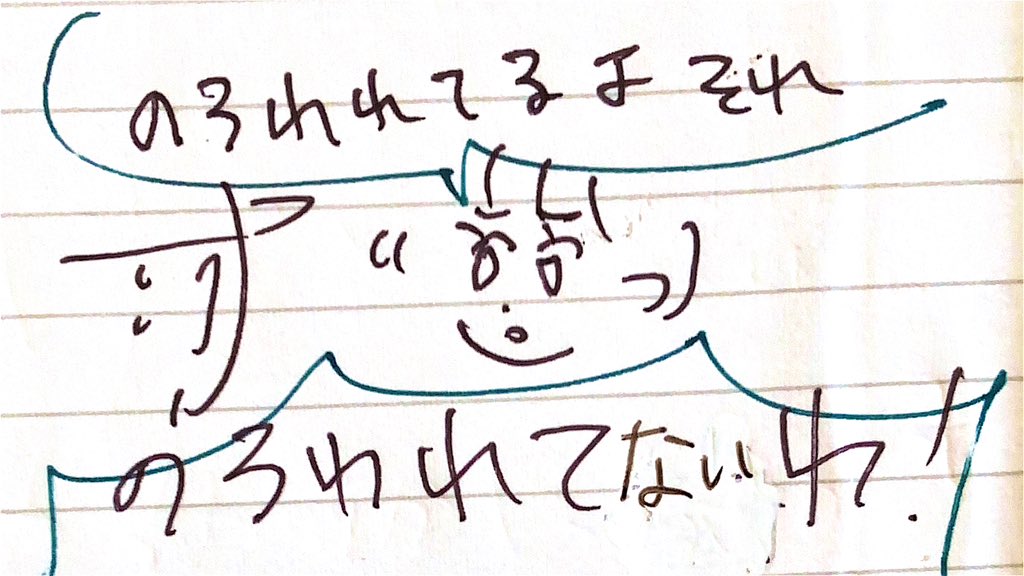 のろわれてるよ それ
のろわれてないわ!